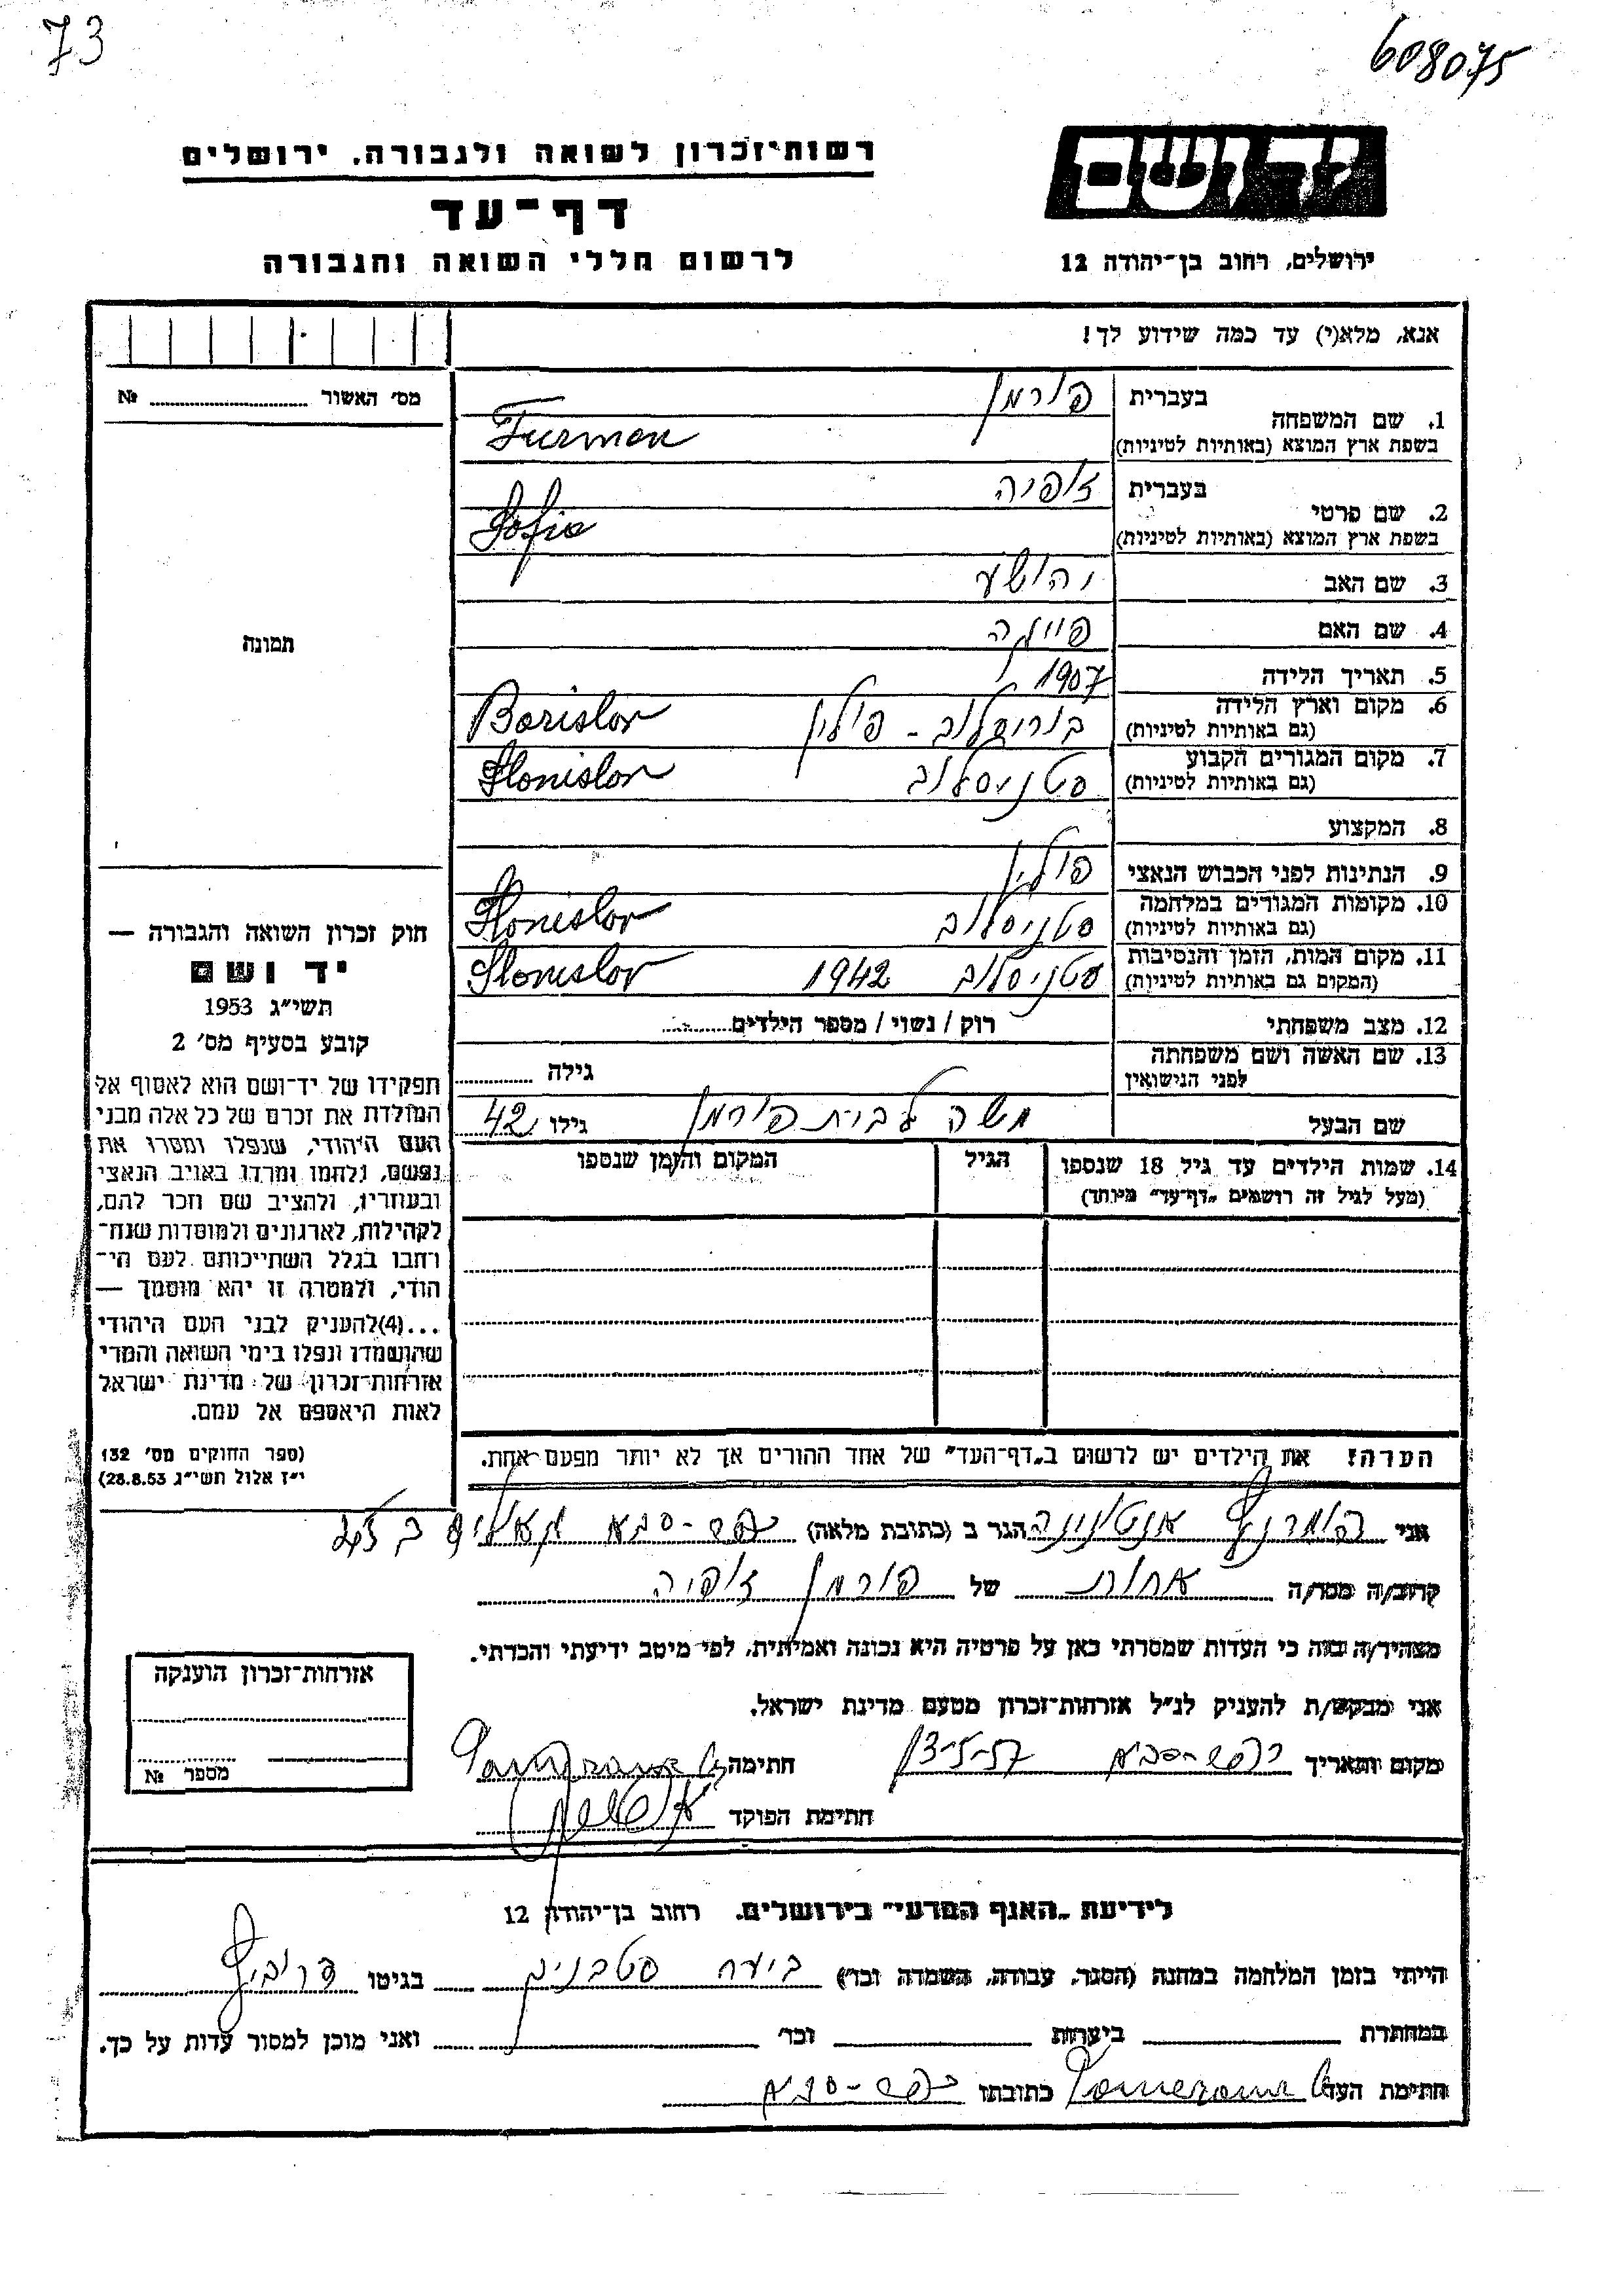 73
608075
יד ושם
רשות־זכרון לשואה ולגבורה, ירושלים
דף־עד
לרשום חללי השואה והגבורה
ירושלים, רחוב בן־יהודה 12
אנא, מלא(י) עד כמה שידוע לך!
מס׳ האשור № 
1. שם המשפחה בעברית פורמן
בשפת ארץ המוצא (באותיות לטיניות) Furman
2. שם פרטי בעברית זופיה
בשפת ארץ המוצא (באותיות לטיניות) Sofia
3. שם האב יהושע
4. שם האם פייגה
5. תאריך הלידה 1907
6. מקום וארץ הלידה (גם באותיות לטיניות) בוריסלוב - פולין Borislav
7. מקום המגורים הקבוע (גם באותיות לטיניות) סטניסלוב Stanislav
8. המקצוע
9. הנתינות לפני הכבוש הנאצי פולין
10. מקומות המגורים במלחמה (גם באותיות לטיניות) סטניסלוב Stanislav
11. מקום המות, הזמן והנסיבות (המקום גם באותיות לטיניות) סטניסלוב 1942 Stanislav
12. מצב משפחתי רוק / נשוי / מספר הילדים
13. שם האשה ושם משפחתה לפני הנישואין גילה
שם הבעל משה לבית פורמן גילו 42
14. שמות הילדים עד גיל 18 שנספו הגיל המקום והזמן שנספו
(מעל לגיל זה רושמים „דף־עד״ מיוחד)
תמונה
חוק זכרון השואה והגבורה —
יד ושם
תשי״ג 1953
קובע בסעיף מס׳ 2
תפקידו של יד־ושם הוא לאסוף אל
המולדת את זכרם של כל אלה מבני
העם היהודי, שנפלו ומסרו את
נפשם, נלחמו ומרדו באויב הנאצי
ובעוזריו, ולהציב שם וזכר להם,
לקהילות, לארגונים ולמוסדות שנח־
רבו בגלל השתייכותם לעם הי־
הודי, ולמטרה זו יהא מוסמך —
...(4)להעניק לבני העם היהודי
שהושמדו ונפלו בימי השואה והמרי
אזרחות־זכרון של מדינת ישראל
לאות היאספם אל עמם.
(ספר החוקים מס׳ 132
י״ז אלול תשי״ג 28.8.53)
הערה! את הילדים יש לרשום ב„דף־העד״ של אחד ההורים אך לא יותר מפעם אחת.
אני פומרנץ אנטונינה הגר ב (כתובת מלאה) כפר-סבא
קרוב/ה מכר/ה אחות של פורמן זופיה
מצהיר/ה בזה כי העדות שמסרתי כאן על פרטיה היא נכונה ואמיתית, לפי מיטב ידיעתי והכרתי.
אני מבקש/ת להעניק לנ״ל אזרחות־זכרון מטעם מדינת ישראל.
מקום ותאריך כפר-סבא 13-5-57 חתימה
חתימת הפוקד
אזרחות־זכרון הוענקה
מספר №
לידיעת „האגף המדעי״ בירושלים, רחוב בן־יהודה 12
הייתי בזמן המלחמה במחנה (הסגר, עבודה, השמדה וכד׳) ביער סטבניק בגיטו
במחתרת ביערות וכד׳ ואני מוכן למסור עדות על כך.
חתימת העד כתובתו כפר-סבא